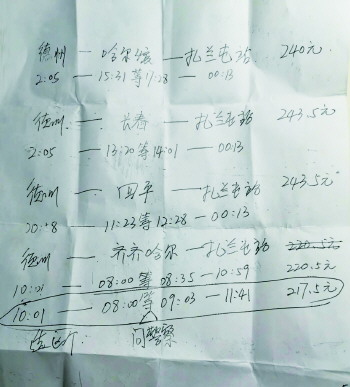 德州 — 哈尔滨 — 扎兰屯站 240元
2:05 — 15:31等17:28 — 00:13
德州 — 长春 — 扎兰屯站 243.5元
2:05 — 13:20等14:01 — 00:13
德州 — 四平 — 扎兰屯站 243.5元
20:18 — 11:23等12:28 — 00:13
德州 — 齐齐哈尔 — 扎兰屯站
10:01 — 08:00等08:35 — 10:59 220.5元
10:01 — 08:00等09:03 — 11:41 217.5元
问警察